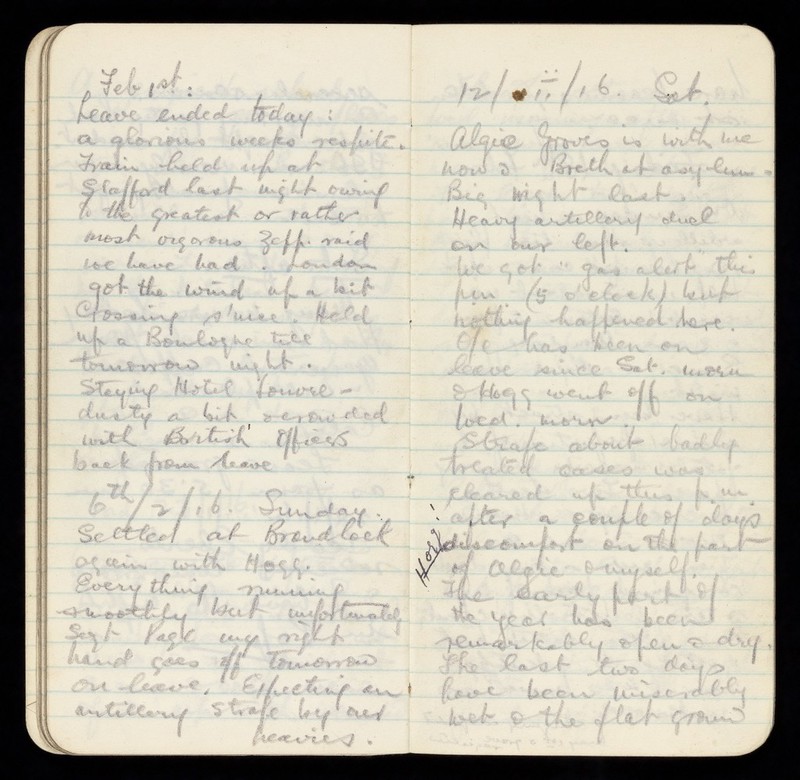 Feb 1st:
Leave ended today:
a glorious weeks respite.
Train held up at
Stafford last night owing
to the greatest or rather
most vigorous Zepp. raid
we have had. London
got the wind up a bit
Crossing s'nice. Held
up a Boulogne till
tomorrow night.
Staying Hotel Louvre -
dusty a bit & crowded
with British Officers
back from leave
6th/2/16. Sunday.
Settled at Brandhoek
again with Hogg.
Everything running
smoothly but unfortunately
Sergt Page my right
hand goes off tomorrow
on leave. Expecting an
artillery strafe by our
heavies.
12/ii/16. Sat.
Algie Groves is with me
now & at asylum.
Big night last.
Heavy artillery duel
on our left.
We got "gas alert" this
pm (5 o'clock) but
nothing happened here.
O/c has been on
leave since Sat. morn
& Hogg went off on
Wed. morn.
Strafe about badly
treated cases was
cleared up this p.m.
after a couple of days
discomfort on the part
of Algie & myself.
Hogg!
The early part of
the year has been
remarkably open & dry.
The last two days
have been miserably
wet & the flat ground